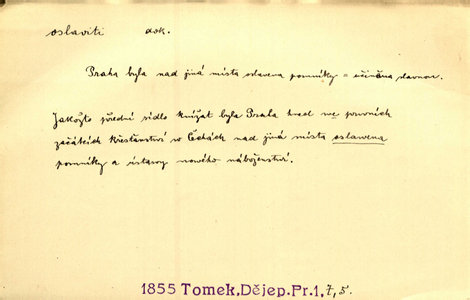 oslaviti dok.
Praha byla nad jiná místa oslavena pomníky = učiněna slavnou.
Jakožto přední sídlo knížat byla Praha hned ve prvních
začátcích křesťanství w Čechách nad jiná místa oslawena
pomníky a ústawy nowého náboženství.
1855 Tomek, Dějep. Pr. 1, 7, 5.